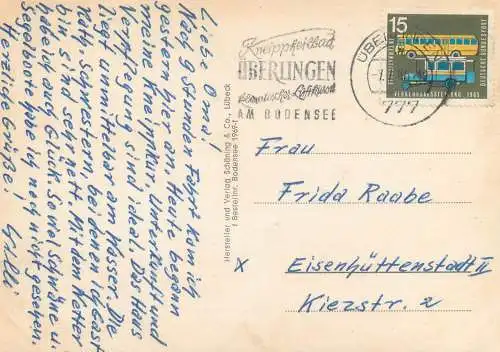 Lieb Oma!
Nach 9 Stunden Fahrt kam ich
gestern hier an. Heute begann
meine Kneippkur. Unterkunft und
Verpfleg. sind ideal. Das Haus
liegt unmittelbar am Wasser. Die
kath. Schwestern, bei denen ich Gast
bin, sind sehr nett. Mit dem Wetter
habe ich auch Glück. So viel Schwäne u.
Segelboote habe ich noch nicht gesehen.
Herzliche Grüße! Willi
Hersteller und Verlag Schöning & Co., Lübeck
Bestellnr. Bodensee 1969-1
Kneippheilbad
ÜBERLINGEN
klimatischer Luftkurort
AM BODENSEE
ÜBERLINGEN
777
15
DEUTSCHE BUNDESPOST
VERKEHRSAUSSTELLUNG 1965
Frau
Frida Raabe
x Eisenhüttenstadt II
Kiezstr. 2